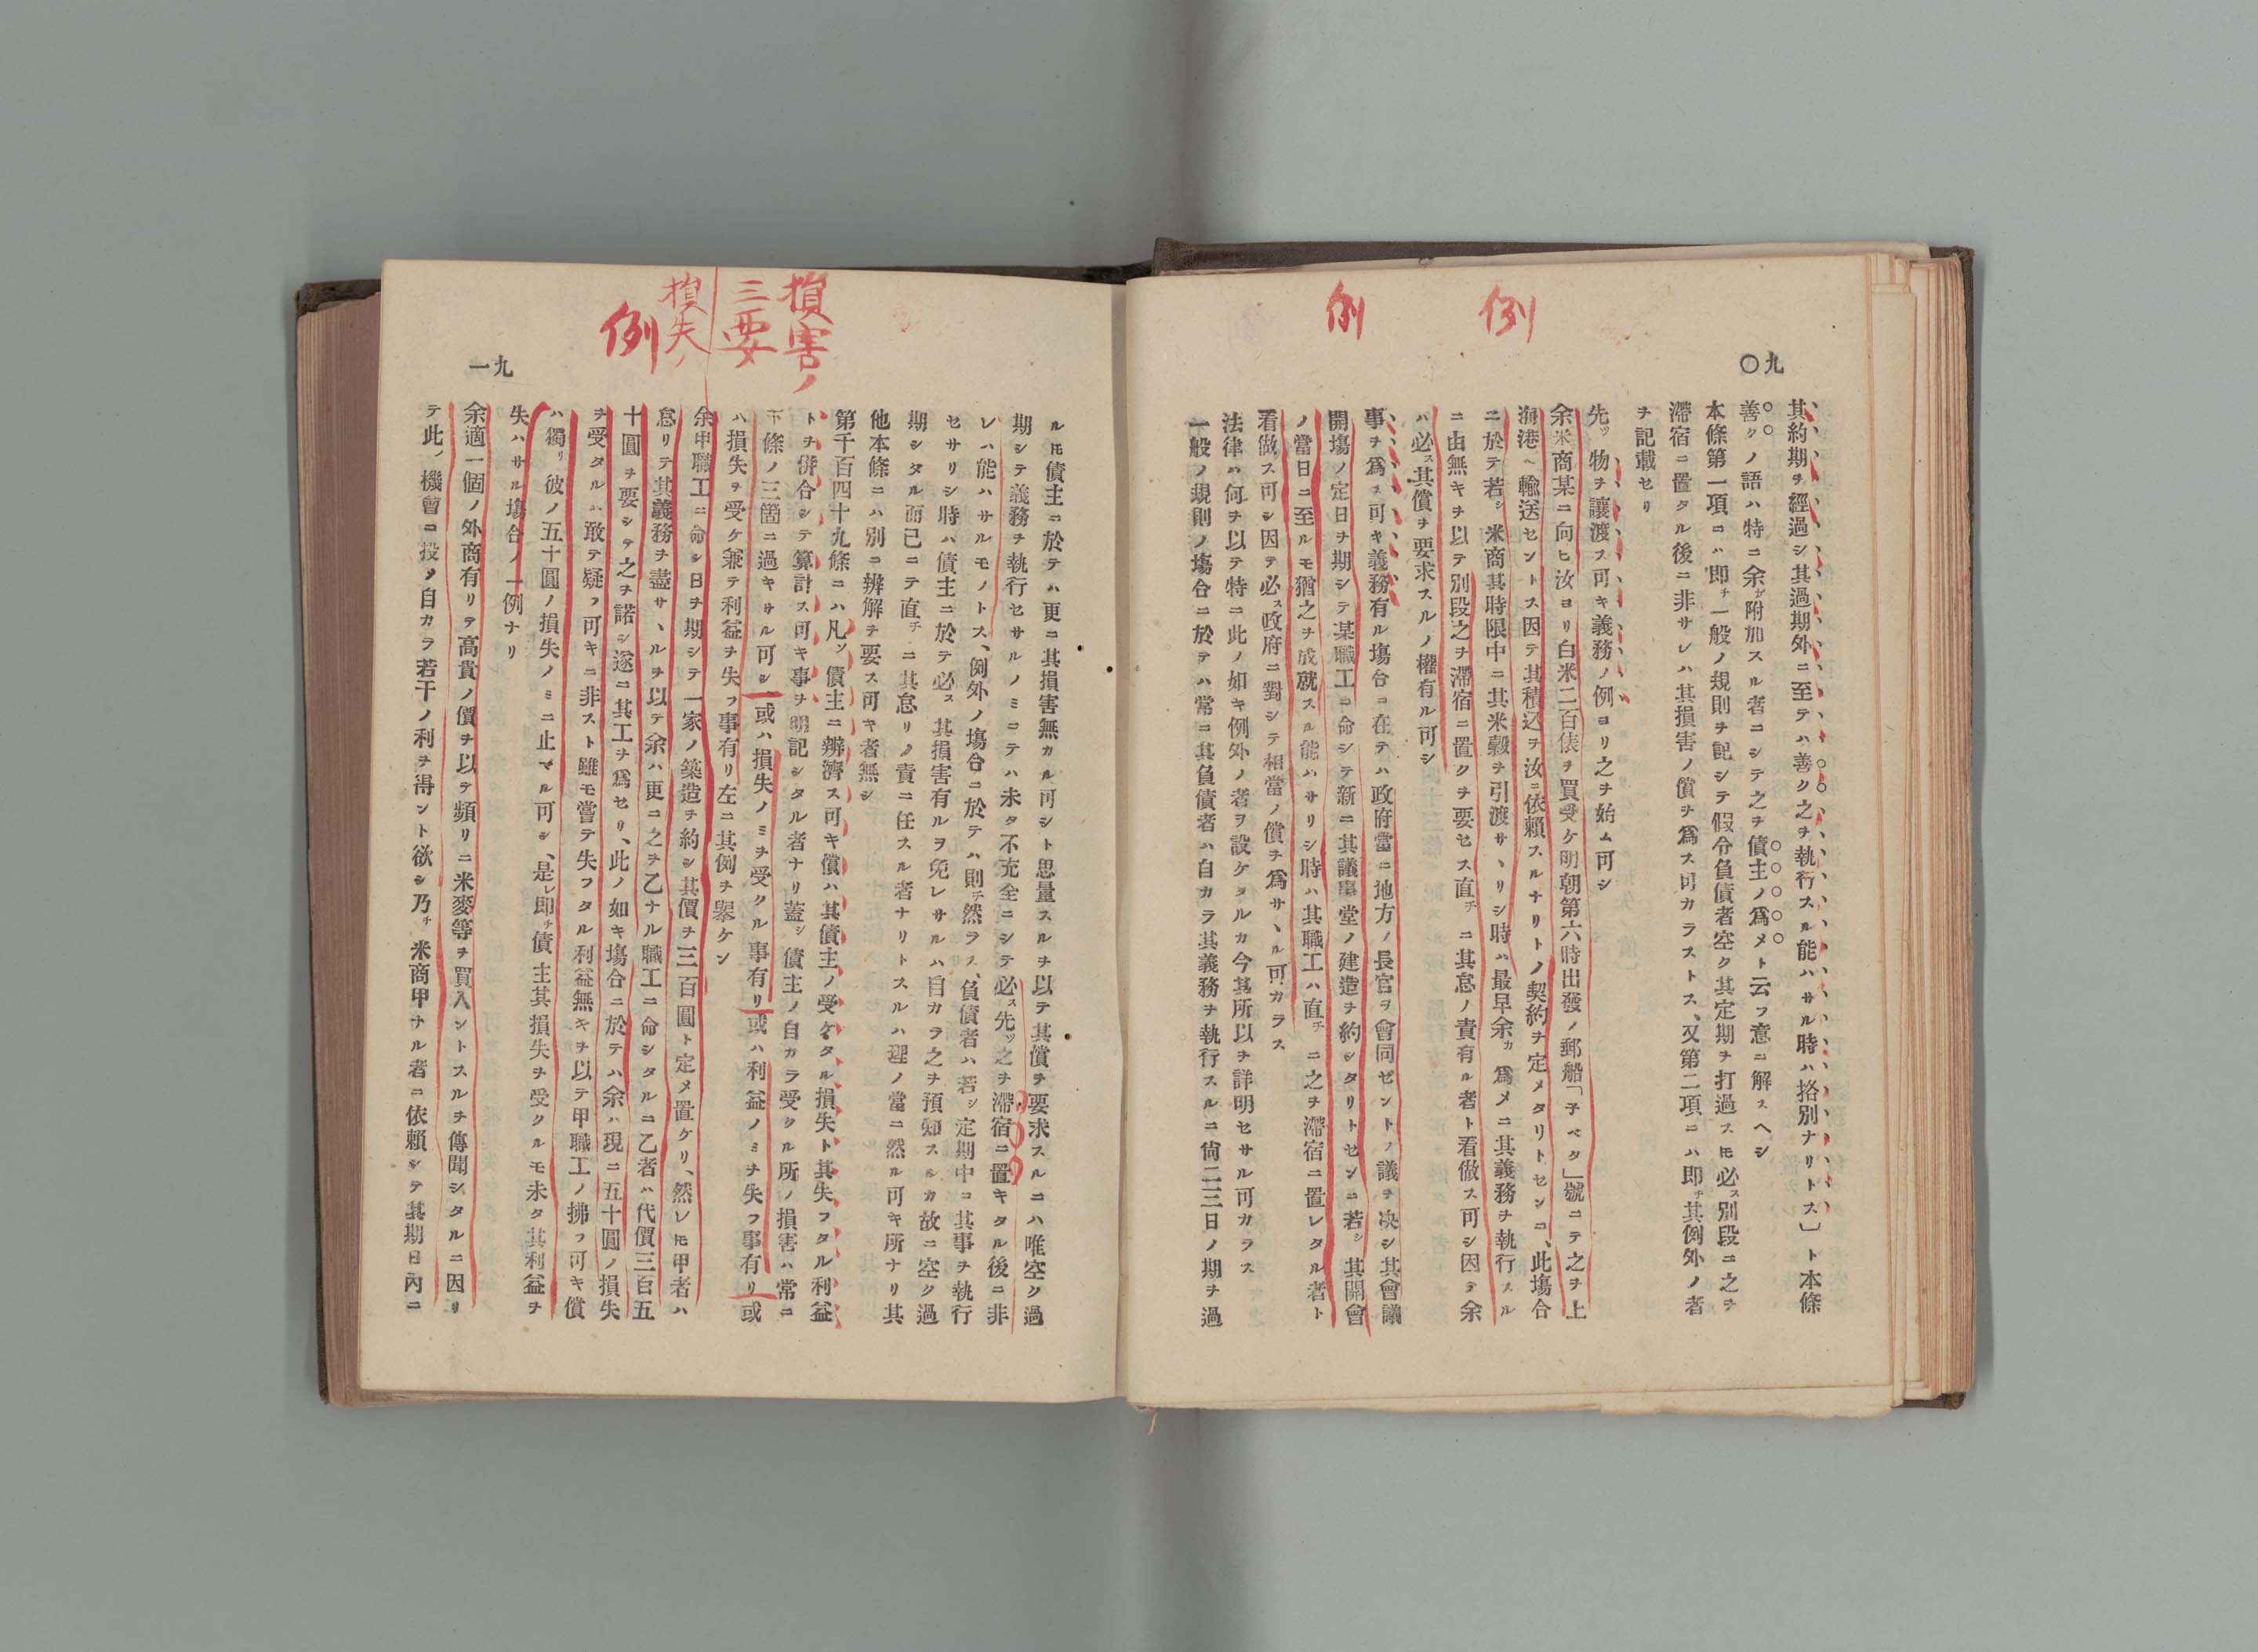 例
例
九〇
其約期ヲ經過シ其過期外ニ至テハ善ク之ヲ執行スル能ハサル時ハ挌別ナリトス」ト本條
善クノ語ハ特ニ余カ附加スル者ニシテ之ヲ債主ノ爲メト云フ意ニ解スヘシ
本條第一項ニハ即チ一般ノ規則ヲ記シテ假令負債者空ク其定期ヲ打過スモ必ス別段ニ之ヲ
滯宿ニ置タル後ニ非サレハ其損害ノ償ヲ爲ス可カラストス、又第二項ニハ即チ其例外ノ者
ヲ記載セリ
先ツ物ヲ讓渡ス可キ義務ノ例ヨリ之ヲ始ム可シ
余米商某ニ向ヒ汝ヨリ白米二百俵ヲ買受ケ明朝第六時出發ノ郵船「子ベタ」號ニテ之ヲ上
海港ヘ輸送セントス因テ其積込ヲ汝ニ依賴スルナリトノ契約ヲ定メタリトセンニ、此塲合
ニ於テ若シ米商其時限中ニ其米穀ヲ引渡サヽリシ時ハ最早余カ爲メニ其義務ヲ執行スル
ニ由無キヲ以テ別段之ヲ滯宿ニ置クヲ要セス直チニ其怠ノ責有ル者ト看做ス可シ因テ余
ハ必ス其償ヲ要求スルノ權有ル可シ
事ヲ爲ス可キ義務有ル塲合ニ在テハ政府當ニ地方ノ長官ヲ會同ゼントノ議ヲ决シ其會議
開塲ノ定日ヲ期シテ某職工ニ命シテ新ニ其議事堂ノ建造ヲ約シタリトセンニ若シ其開會
ノ當日ニ至ルモ猶之ヲ成就スル能ハサリシ時ハ其職工ハ直チニ之ヲ滯宿ニ置レタル者ト
看做ス可シ因テ必ス政府ニ對シテ相當ノ償ヲ爲サヽル可カラス
法律ハ何ヲ以テ特ニ此ノ如キ例外ノ者ヲ設ケタルカ今其所以ヲ詳明セサル可カラス
一般ノ規則ノ塲合ニ於テハ常ニ其負債者ハ自カラ其義務ヲ執行スルニ尙二三日ノ期ヲ過
損害ノ
三要
損失ノ
例
九一
ルモ債主ニ於テハ更ニ其損害無カル可シト思量スルヲ以テ其償ヲ要求スルニハ唯空ク過
期シテ義務ヲ執行セサルノミニテハ未タ不充全ニシテ必ス先ッ之ヲ滯宿ニ置キタル後ニ非
レハ能ハサルモノトス、例外ノ塲合ニ於テハ則チ然ラス、負債者ハ若シ定期中ニ其事ヲ執行
セサリシ時ハ債主ニ於テ必ス其損害有ルヲ免レサルハ自カラ之ヲ預知スルカ故ニ空ク過
期シタル而已ニテ直チニ其怠リノ責ニ任スル者ナリトスルハ理ノ當ニ然ル可キ所ナリ其
他本條ニハ別ニ辨解ヲ要ス可キ者無シ
第千百四十九條ニハ凡ソ債主ニ辨濟ス可キ償ハ其債主ノ受ケタル損失ト其失フタル利益
トヲ併合シテ算計ス可キ事ヲ明記シタル者ナリ蓋シ債主ノ自カラ受クル所ノ損害ハ常ニ
下條ノ三箇ニ過キサル可シ或ハ損失ノミヲ受クル事有リ或ハ利益ノミヲ失フ事有リ或
ハ損失ヲ受ケ兼テ利益ヲ失フ事有リ左ニ其例ヲ擧ケン
余甲職工ニ命シ日ヲ期シテ一家ノ築造ヲ約シ其價ヲ三百圓ト定メ置ケリ、然レモ甲者ハ
怠リテ其義務ヲ盡サヽルヲ以テ余ハ更ニ之ヲ乙ナル職工ニ命シタルニ乙者ハ代價三百五
十圓ヲ要シテ之ヲ諾シ遂ニ其工ヲ爲セリ、此ノ如キ塲合ニ於テハ余ハ現ニ五十圓ノ損失
ヲ受タルハ敢テ疑フ可キニ非スト雖モ嘗テ失フタル利益無キヲ以テ甲職工ノ拂フ可キ償
ハ獨リ彼ノ五十圓ノ損失ノミニ止マル可シ、是レ即チ債主其損失ヲ受クルモ未タ其利益ヲ
失ハサル塲合ノ一例ナリ
余適一個ノ外商有リテ高貴ノ價ヲ以テ頻リニ米麥等ヲ買入ントスルヲ傳聞シタルニ因リ
テ此ノ機會ニ投メ自カラ若干ノ利ヲ得ント欲シ乃チ米商甲ナル者ニ依賴シテ其期日內ニ